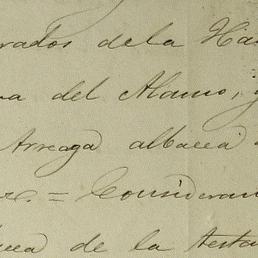 rados de la Ha
va del Alamo, y
Arreaga albacea
= Consideran
cea de la testa